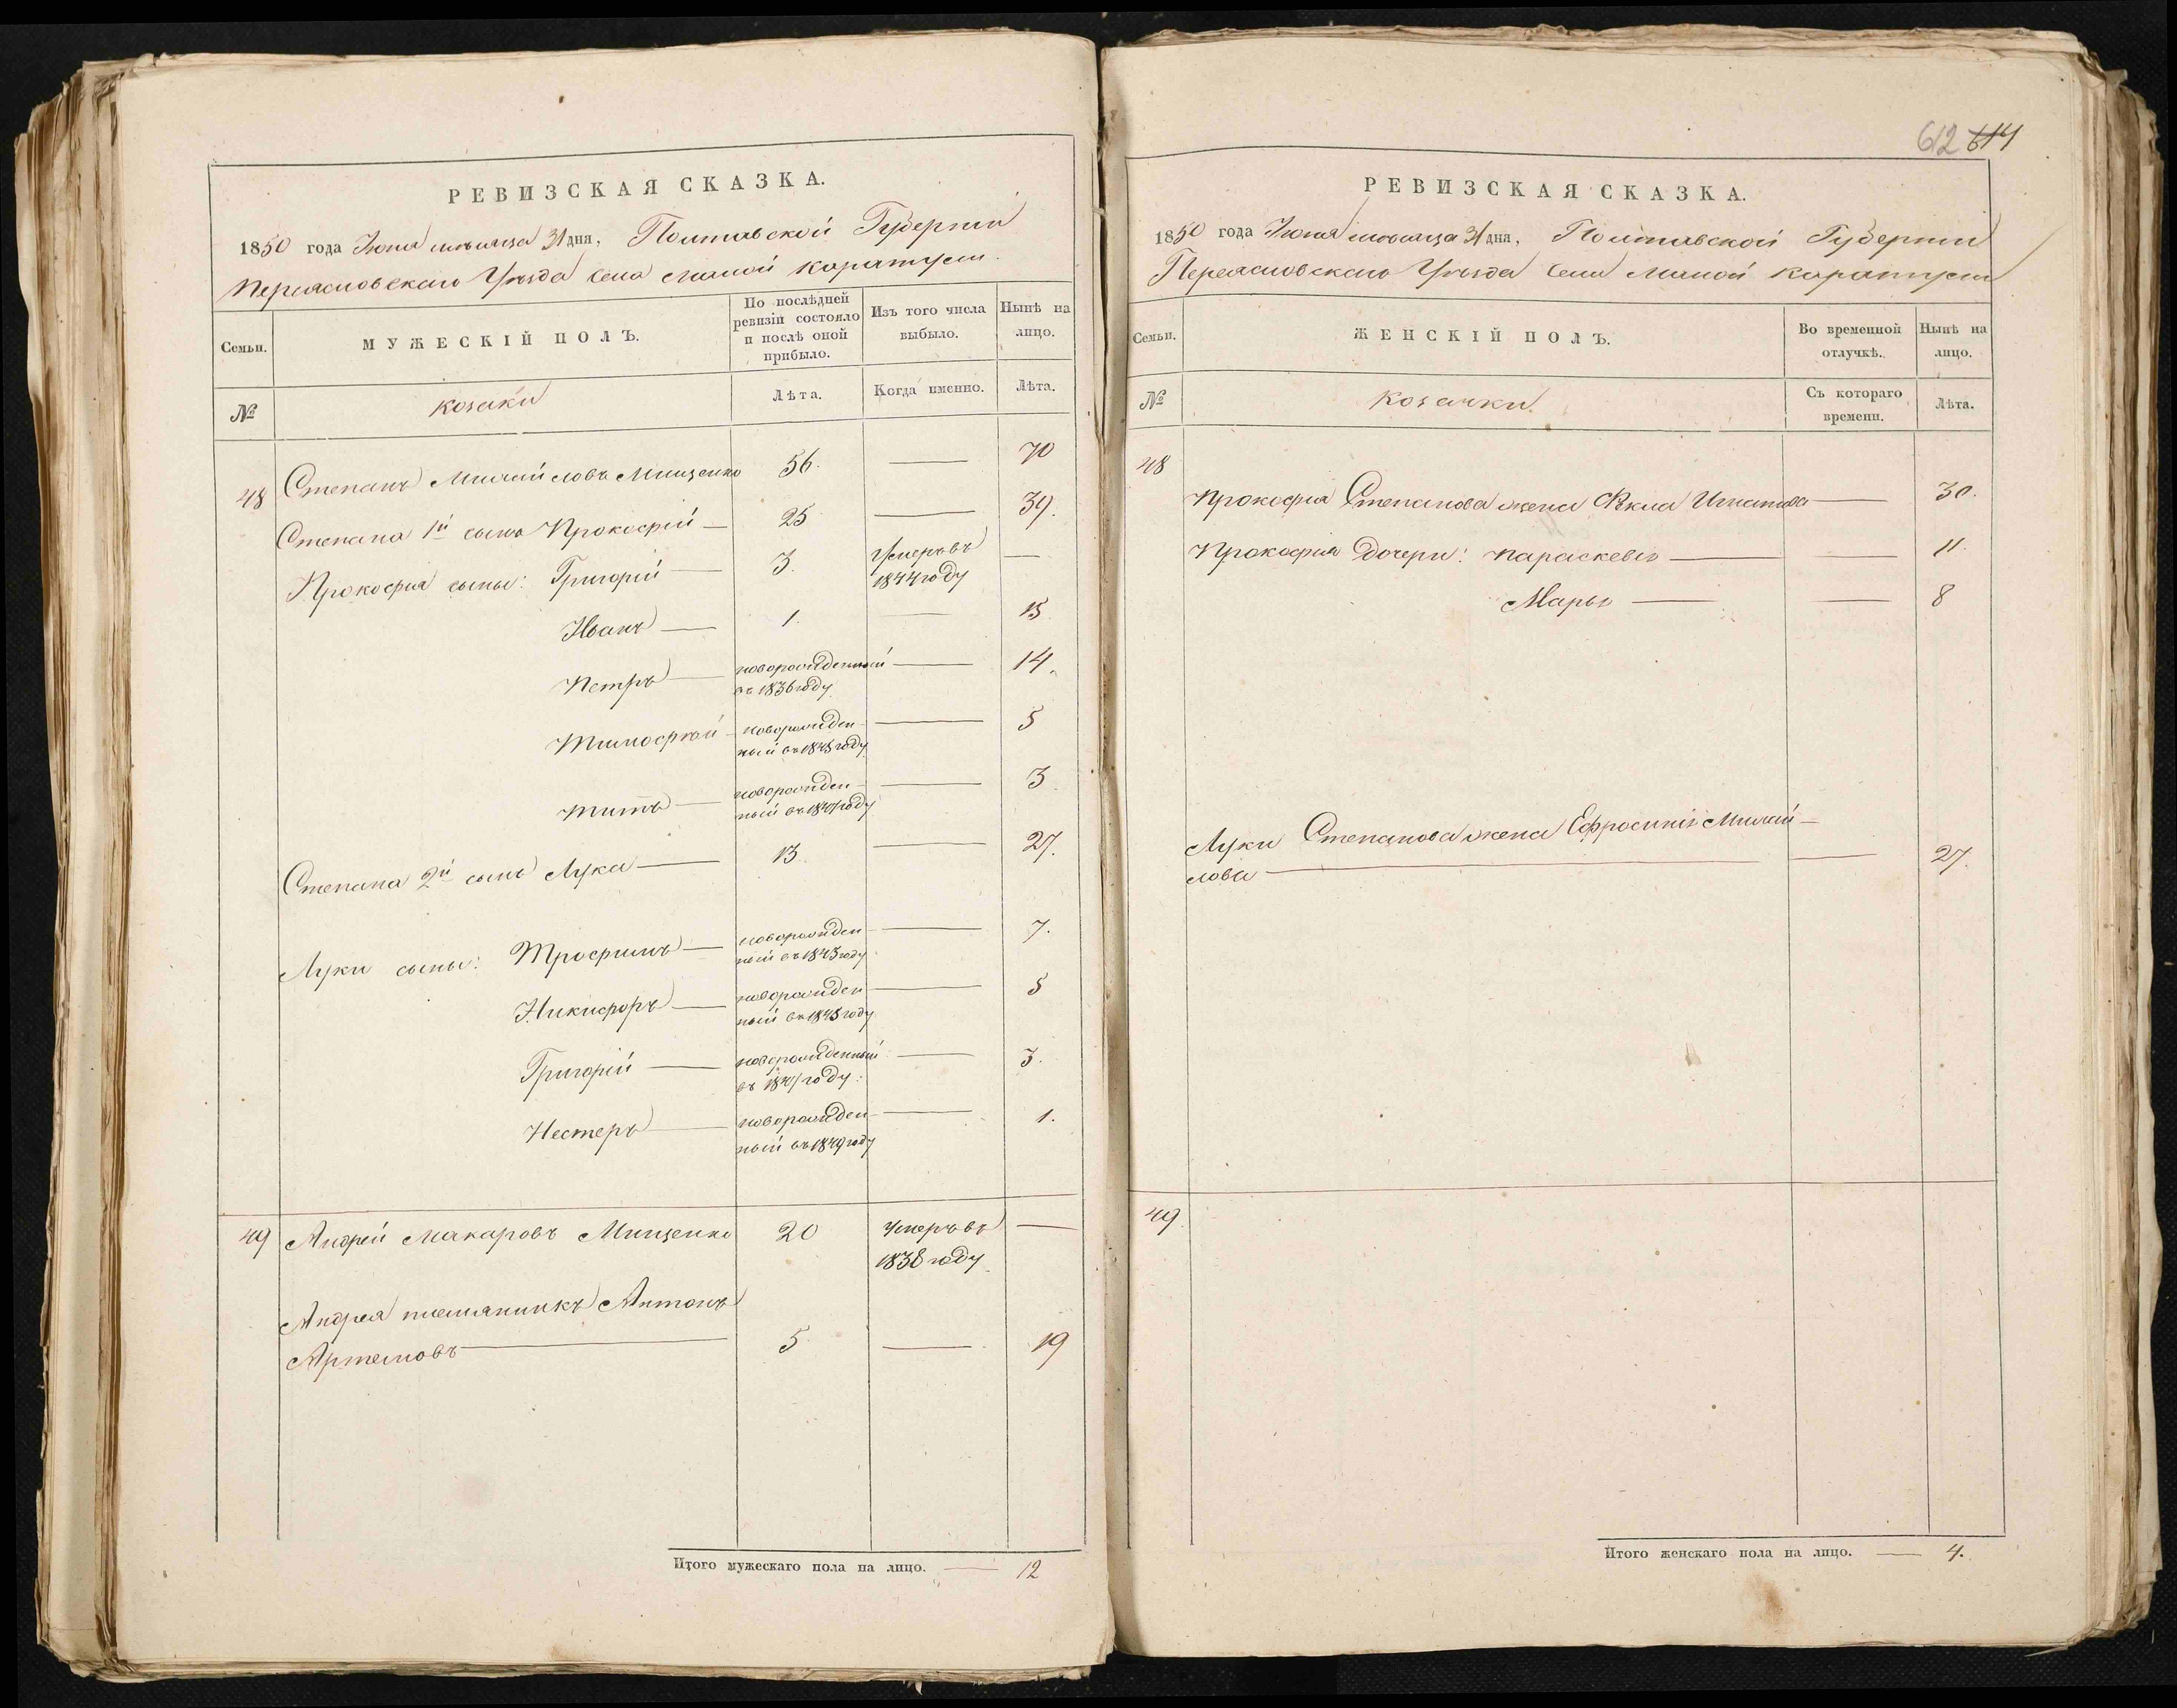 РЕВИЗСКАЯ СКАЗКА.
1850 года Июня месяца 31 дня, Полтавской Губерніи
Переясловскаго Уѣзда Села Малой Каратули.
Семьи.
МУЖЕСКІЙ ПОЛЪ.
По послѣдней ревизіи состояло и послѣ оной прибыло.
Изъ того числа выбыло.
Нынѣ на лицо.
№
козаки
Лѣта.
Когда именно.
Лѣта.
48 Степанъ Михайловъ Мищенко 56. — 70
Степана 1й сынъ Прокофій — 25 — 39.
Прокофія сыны: Григорій — 3. Умеръ въ —
1844 году
Иванъ — 1. — 15
Петръ — новорожденный — 14.
въ 1836 году
Тимофей — новорожден- — 5
ный въ 1845 году
Титъ — новорожден- — 3
ный въ 1847 году
Степана 2й сынъ Лука — 13. — 27.
Луки сыны: Трофимъ — новорожден- — 7.
ный въ 1843 году
Никифоръ — новорожден- — 5
ный въ 1845 году
Григорій — новорожденный — 3.
въ 1847 году.
Нестеръ — новорожден- — 1.
ный въ 1849 году
49 Андрей Макаровъ Мищенко 20 Умеръ въ —
1838 году
Андрея племянникъ Антонъ
Артемовъ — 5 — 19
Итого мужескаго пола на лицо. — 12
612 614
РЕВИЗСКАЯ СКАЗКА.
1850 года Июня месяца 31 дна, Полтавской Губерніи
Переясловскаго Уѣзда Села Малой Каратули
Семьи.
ЖЕНСКІЙ ПОЛЪ.
Во временной отлучкѣ.
Нынѣ на лицо.
№
козачки.
Съ котораго времени.
Лѣта.
48
Прокофія Степанова жена Ѳекла Игнатова — 30.
Прокофія дочери: Параскевія — — 11.
Марья — — 8
Луки Степанова жена Ефросинія Михай-
лова — — 27.
49.
Итого женскаго пола на лицо. — 4.